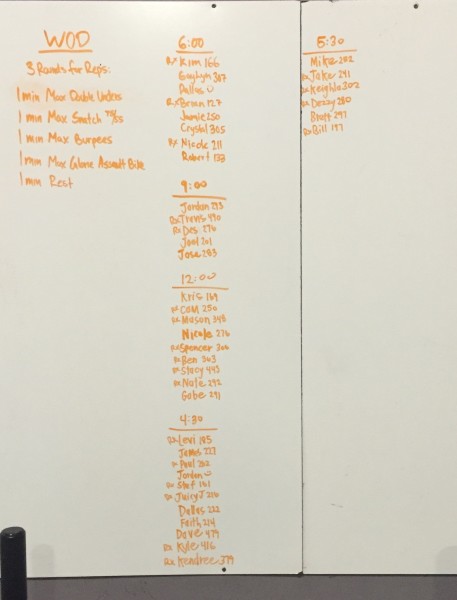 WOD
3 Rounds for Reps:
1 min Max Double Unders
1 min Max Snatch 75/55
1 min Max Burpees
1 min Max Calorie Assault Bike
1 min Rest
6:00
Rx Kim 166
307
Dallas
Rx Brian 127
Jamie 250
Crystal 305
Rx Nicole 211
Robert 133
9:00
Jordan 293
Rx Travis 490
Rx Des 276
Joel 201
Jose 283
12:00
Kris 169
Rx Com 250
Rx Mason 348
Nicole 276
Rx Spencer 306
Rx Ben 263
Rx Stacy 443
Rx Nate 292
Gabe 291
4:30
Rx Levi 185
James 227
Rx Paul 262
Jordan
Rx Stef 161
Rx Juicy J 226
Dallas 222
Faith 214
Dave 479
Rx Kyle 416
Rx Kendree 379
5:30
Mike 202
Rx Jake 241
Rx Keighla 302
Rx Dezzy 280
Brett 297
Rx Bill 197